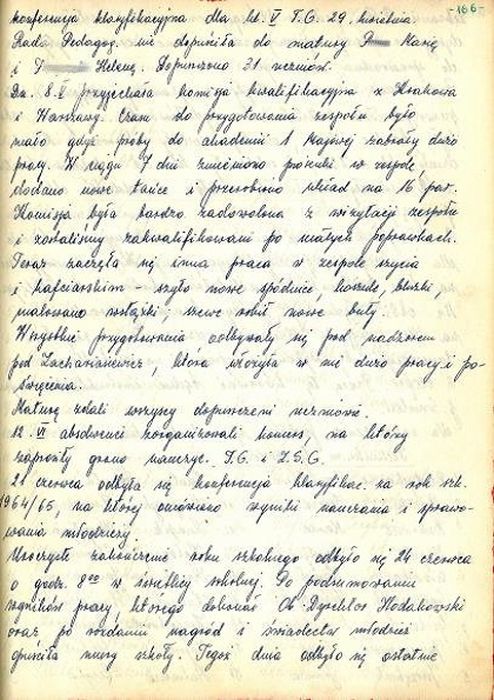 -186-
konferencja klasyfikacyjna dla kl. V T.G. 29. kwietnia
Rada Pedagog. nie dopuściła do matury P Marię
i T Helenę. Dopuszczono 31 uczniów.
Dn. 8.V przyjechała komisja kwalifikacyjna z Krakowa
i Warszawy. Czasu do przygotowania zespołu było
mało gdyż próby do akademii 1 Majowej zabrały dużo
pracy. W ciągu 7 dni zmieniono piosenki w zespole,
dodano nowe tańce i przerobiono układ na 16 par.
Komisja była bardzo zadowolona z wizytacji zespołu
i zostaliśmy zakwalifikowani po małych poprawkach.
Teraz zaczęła się inna praca w zespole szycia
i hafciarskim - szyto nowe spódnice, koszule, bluzki,
malowano wstążki, szewc robił nowe buty
Wszystkie przygotowania odbywały się pod nadzorem
prof. Zachariasiewicz, która włożyła w nie dużo pracy i po-
święcenia.
Maturę zdali wszyscy dopuszczeni uczniowie.
12.VI absolwenci zorganizowali komers, na który
zaprosiły grono nauczyc. T.G. i Z.S.G.
21 czerwca odbyła się konferencja klasyfikac. za rok szk.
1964/65, na której omówiono wyniki nauczania i sprawo-
wania młodzieży.
Uroczyste zakończenie roku szkolnego odbyło się 24 czerwca
o godz. 8⁰⁰ w świetlicy szkolnej. Po podsumowaniu
wyników pracy, którego dokonał Ob. Dyrektor Hodakowski
oraz po rozdaniu nagród i świadectw młodzież
opuściła mury szkoły. Tegoż dnia odbyło się ostatnie